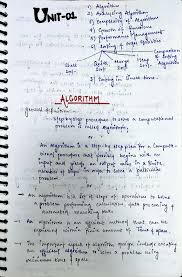 UNIT-01
1) Algorithm
2) Analyzing Algorithm
3) Complexity of Algorithm
4) Growth of
5) Performance Measurement
6) Sorting & order Statistics
Shell Sort
Quick Sort
Merge Sort
Heap Sort
Comparison of Sorting Algorithms
7) Sorting in linear time
ALGORITHM
general definition:-
Step by step procedure to solve a computational
problem is called Algorithm.
or
An Algorithm is a step by step plan for a computa-
tional procedure that possibly begins with an
input and yields an output value in a finite
number of steps in order to solve a particular
problem.
or
An algorithm is a set of steps of operations to solve
a problem performing calculation, data processing &
automated reasoning tasks.
→ An Algorithm is an efficient method that can be
expressed within finite amount of time & space.
→ The important aspects of algorithm design include creating
an efficient algorithm to solve a problem using
minimum time & space.